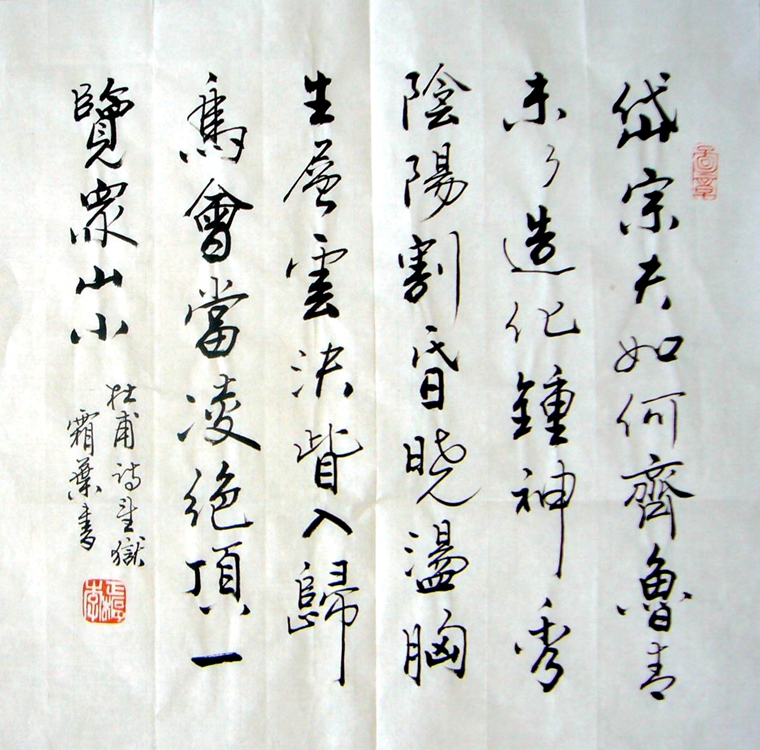 岱宗夫如何齊魯青
未了造化鍾神秀
陰陽割昏曉盪胸
生層雲決眥入歸
鳥會當凌絶頂一
覽眾山小
杜甫詩望嶽
霜葉書